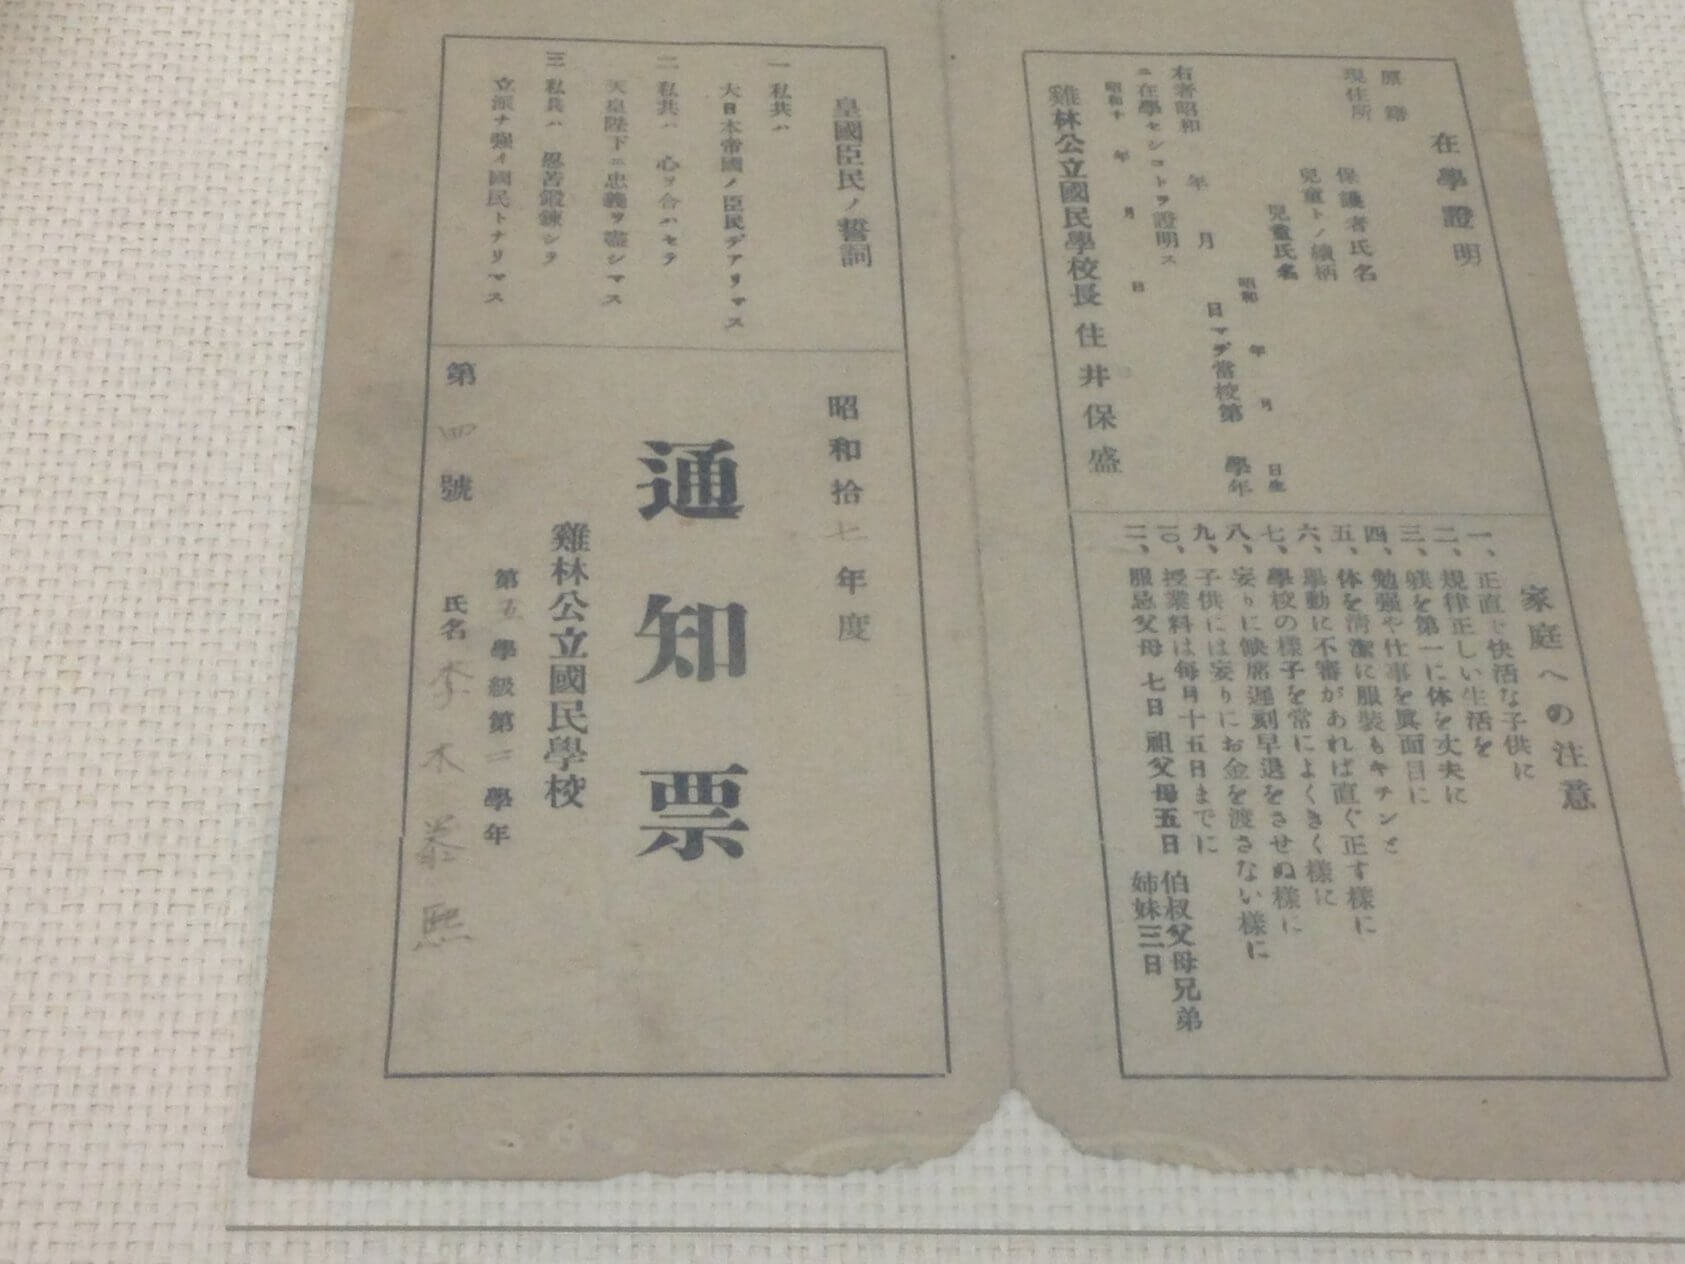 在學證明
原籍
現住所
保護者氏名
兒童トノ續柄
兒童氏名
昭和 年 月 日生
右者昭和 年 月 日マデ當校第 學年
ニ在學セシコトヲ證明ス
昭和十 年 月 日
雞林公立國民學校長 住井保盛
家庭への注意
一、正直で快活な子供に
二、規律正しい生活を
三、躾を第一に体を丈夫に
四、勉强や仕事を眞面目に
五、体を淸潔に服裝もキチンと
六、擧動に不審があれば直ぐ正す樣に
七、學校の樣子を常によくきく樣に
八、妄りに缺席遲刻早退をさせぬ樣に
九、子供には妄りにお金を渡さない樣に
一〇、授業料は每月十五日までに
一一、服忌父母 七日 祖父母五日 伯叔父母兄弟姉妹三日
皇國臣民ノ誓詞
一 私共ハ
大日本帝國ノ臣民デアリマス
二 私共ハ 心ヲ合ハセテ
天皇陛下ニ忠義ヲ盡シマス
三 私共ハ 忍苦鍛鍊シテ
立派ナ强イ國民トナリマス
昭和拾七年度
通知票
雞林公立國民學校
第五學級第二學年
第四號
氏名 李木泰熙